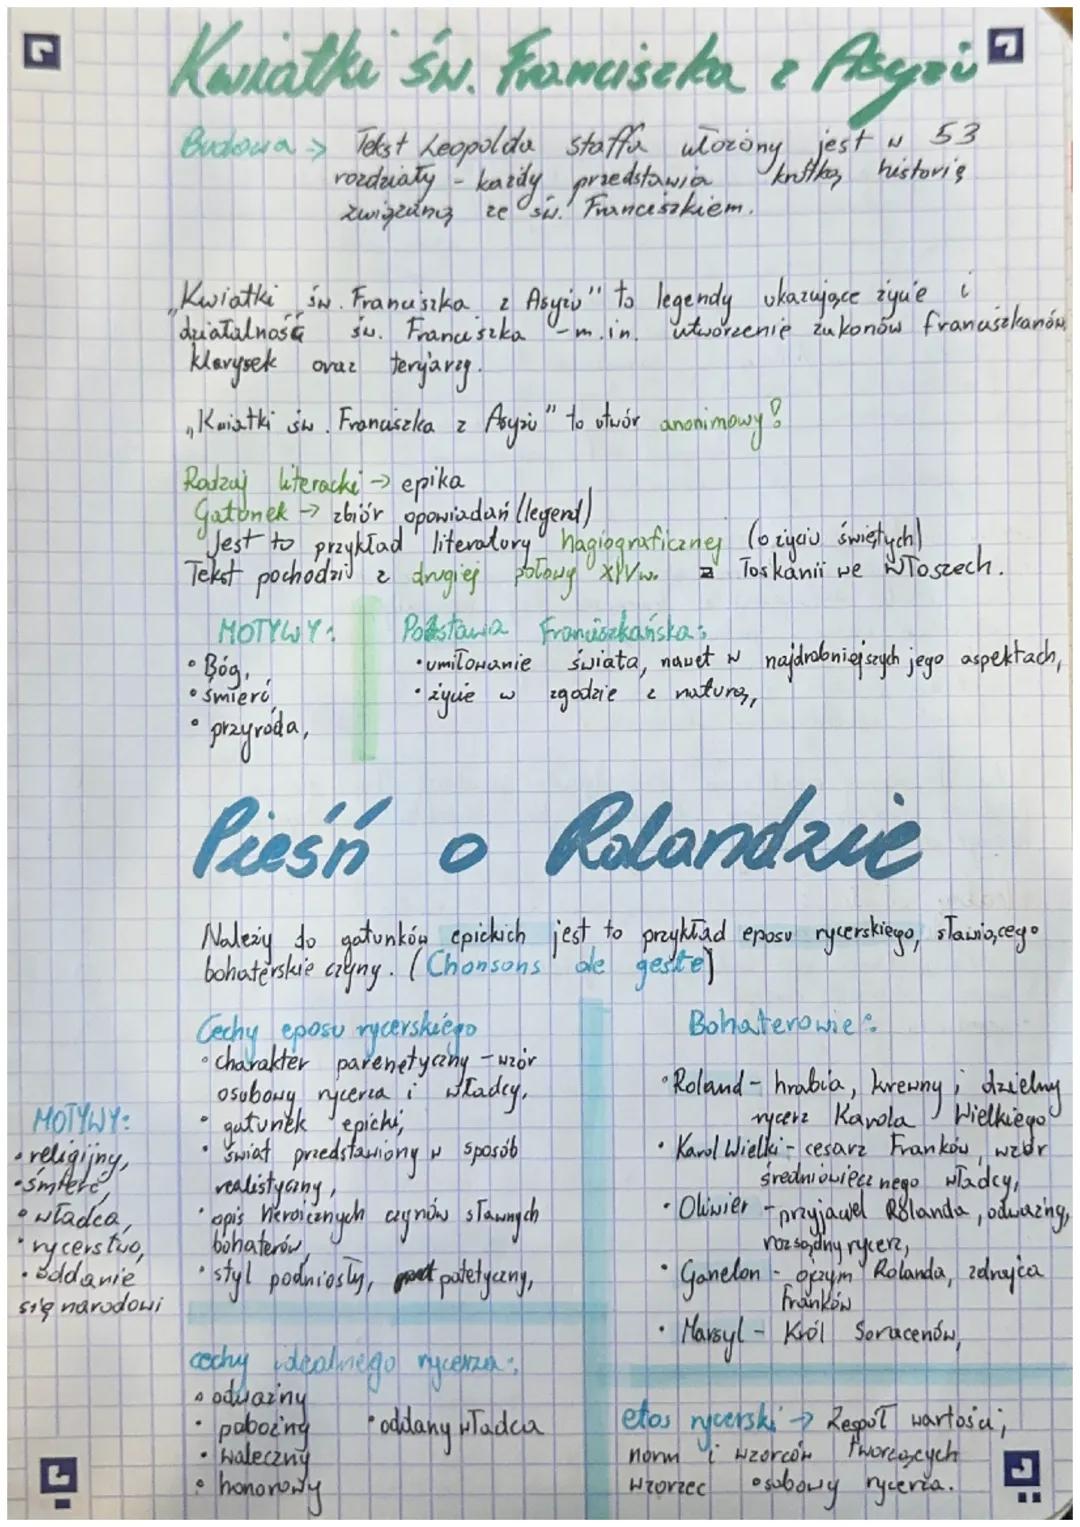 Kwiatki św. Franciszka z Asyżu
Budowa → Tekst Leopolda Staffa ułożony jest w 53
rozdziały - każdy przedstawia krótką historię
związaną ze św. Franciszkiem.
„Kwiatki św. Franciszka z Asyżu" to legendy ukazujące życie i
działalność św. Franciszka - m.in. utworzenie zakonów franciszkanów,
klarysek oraz tercjarzy.
„Kwiatki św. Franciszka z Asyżu" to utwór anonimowy!
Rodzaj literacki → epika
Gatunek → zbiór opowiadań (legend)
Jest to przykład literatury hagiograficznej (o życiu świętych)
Tekst pochodzi z drugiej połowy XIV w. z Toskanii we Włoszech.
MOTYWY:
• Bóg,
• śmierć,
• przyroda,
Postawa Franciszkańska:
• umiłowanie świata, nawet w najdrobniejszych jego aspektach,
• życie w zgodzie z naturą,
Pieśń o Rolandzie
Należy do gatunków epickich jest to przykład eposu rycerskiego, sławiącego
bohaterskie czyny. (Chonsons de geste)
Cechy eposu rycerskiego
• charakter parenetyczny - wzór
osobowy rycerza i władcy,
• gatunek epicki,
• świat przedstawiony w sposób
realistyczny,
• opis heroicznych czynów sławnych
bohaterów,
• styl podniosły, patetyczny,
MOTYWY:
• religijny,
• śmierć,
• władca,
• rycerstwo,
• oddanie
się narodowi
Bohaterowie:
• Roland - hrabia, krewny i dzielny
rycerz Karola Wielkiego
• Karol Wielki - cesarz Franków, wzór
średniowiecznego władcy,
• Oliwier - przyjaciel Rolanda, odważny,
rozsądny rycerz,
• Ganelon - ojczym Rolanda, zdrajca
Franków
• Marsyl - Król Saracenów,
cechy idealnego rycerza:
• odważny
• pobożny
• waleczny
• honorowy
• oddany władca
etos rycerski → Zespół wartości,
norm i wzorców tworzących
wzorzec osobowy rycerza.